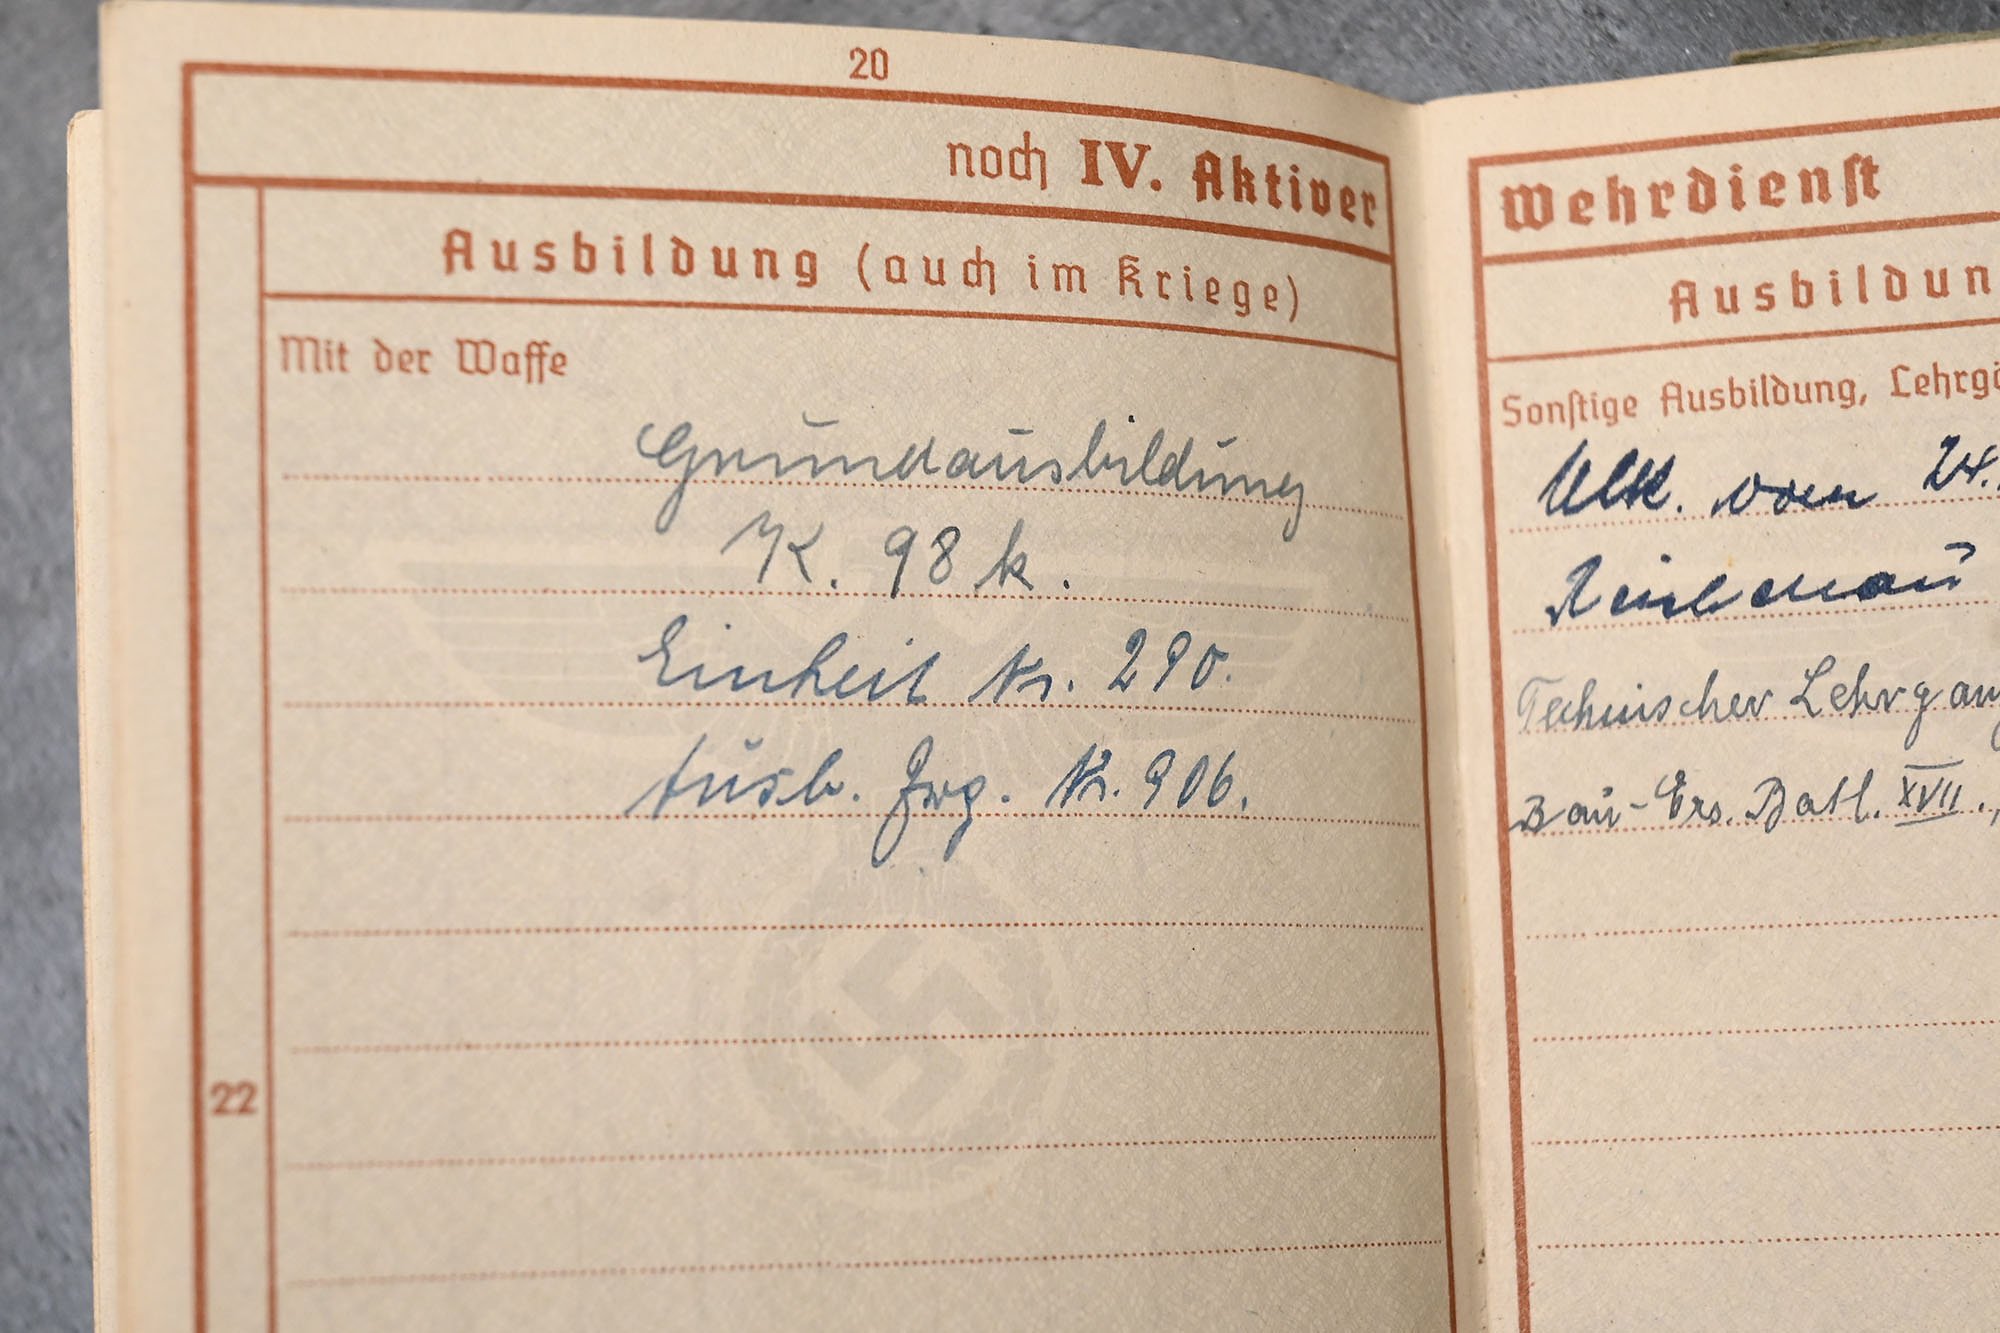 20
noch IV. Aktiver
Ausbildung (auch im Kriege)
Mit der Waffe
Grundausbildung
K. 98 k.
Einheit Nr. 290.
Ausb. Jrg. Nr. 906.
22
Wehrdienst
Ausbildun
Sonstige Ausbildung, Lehrgä
vom 24.
Technischer Lehrgang
Bau-Ers. Batl. XVII.,